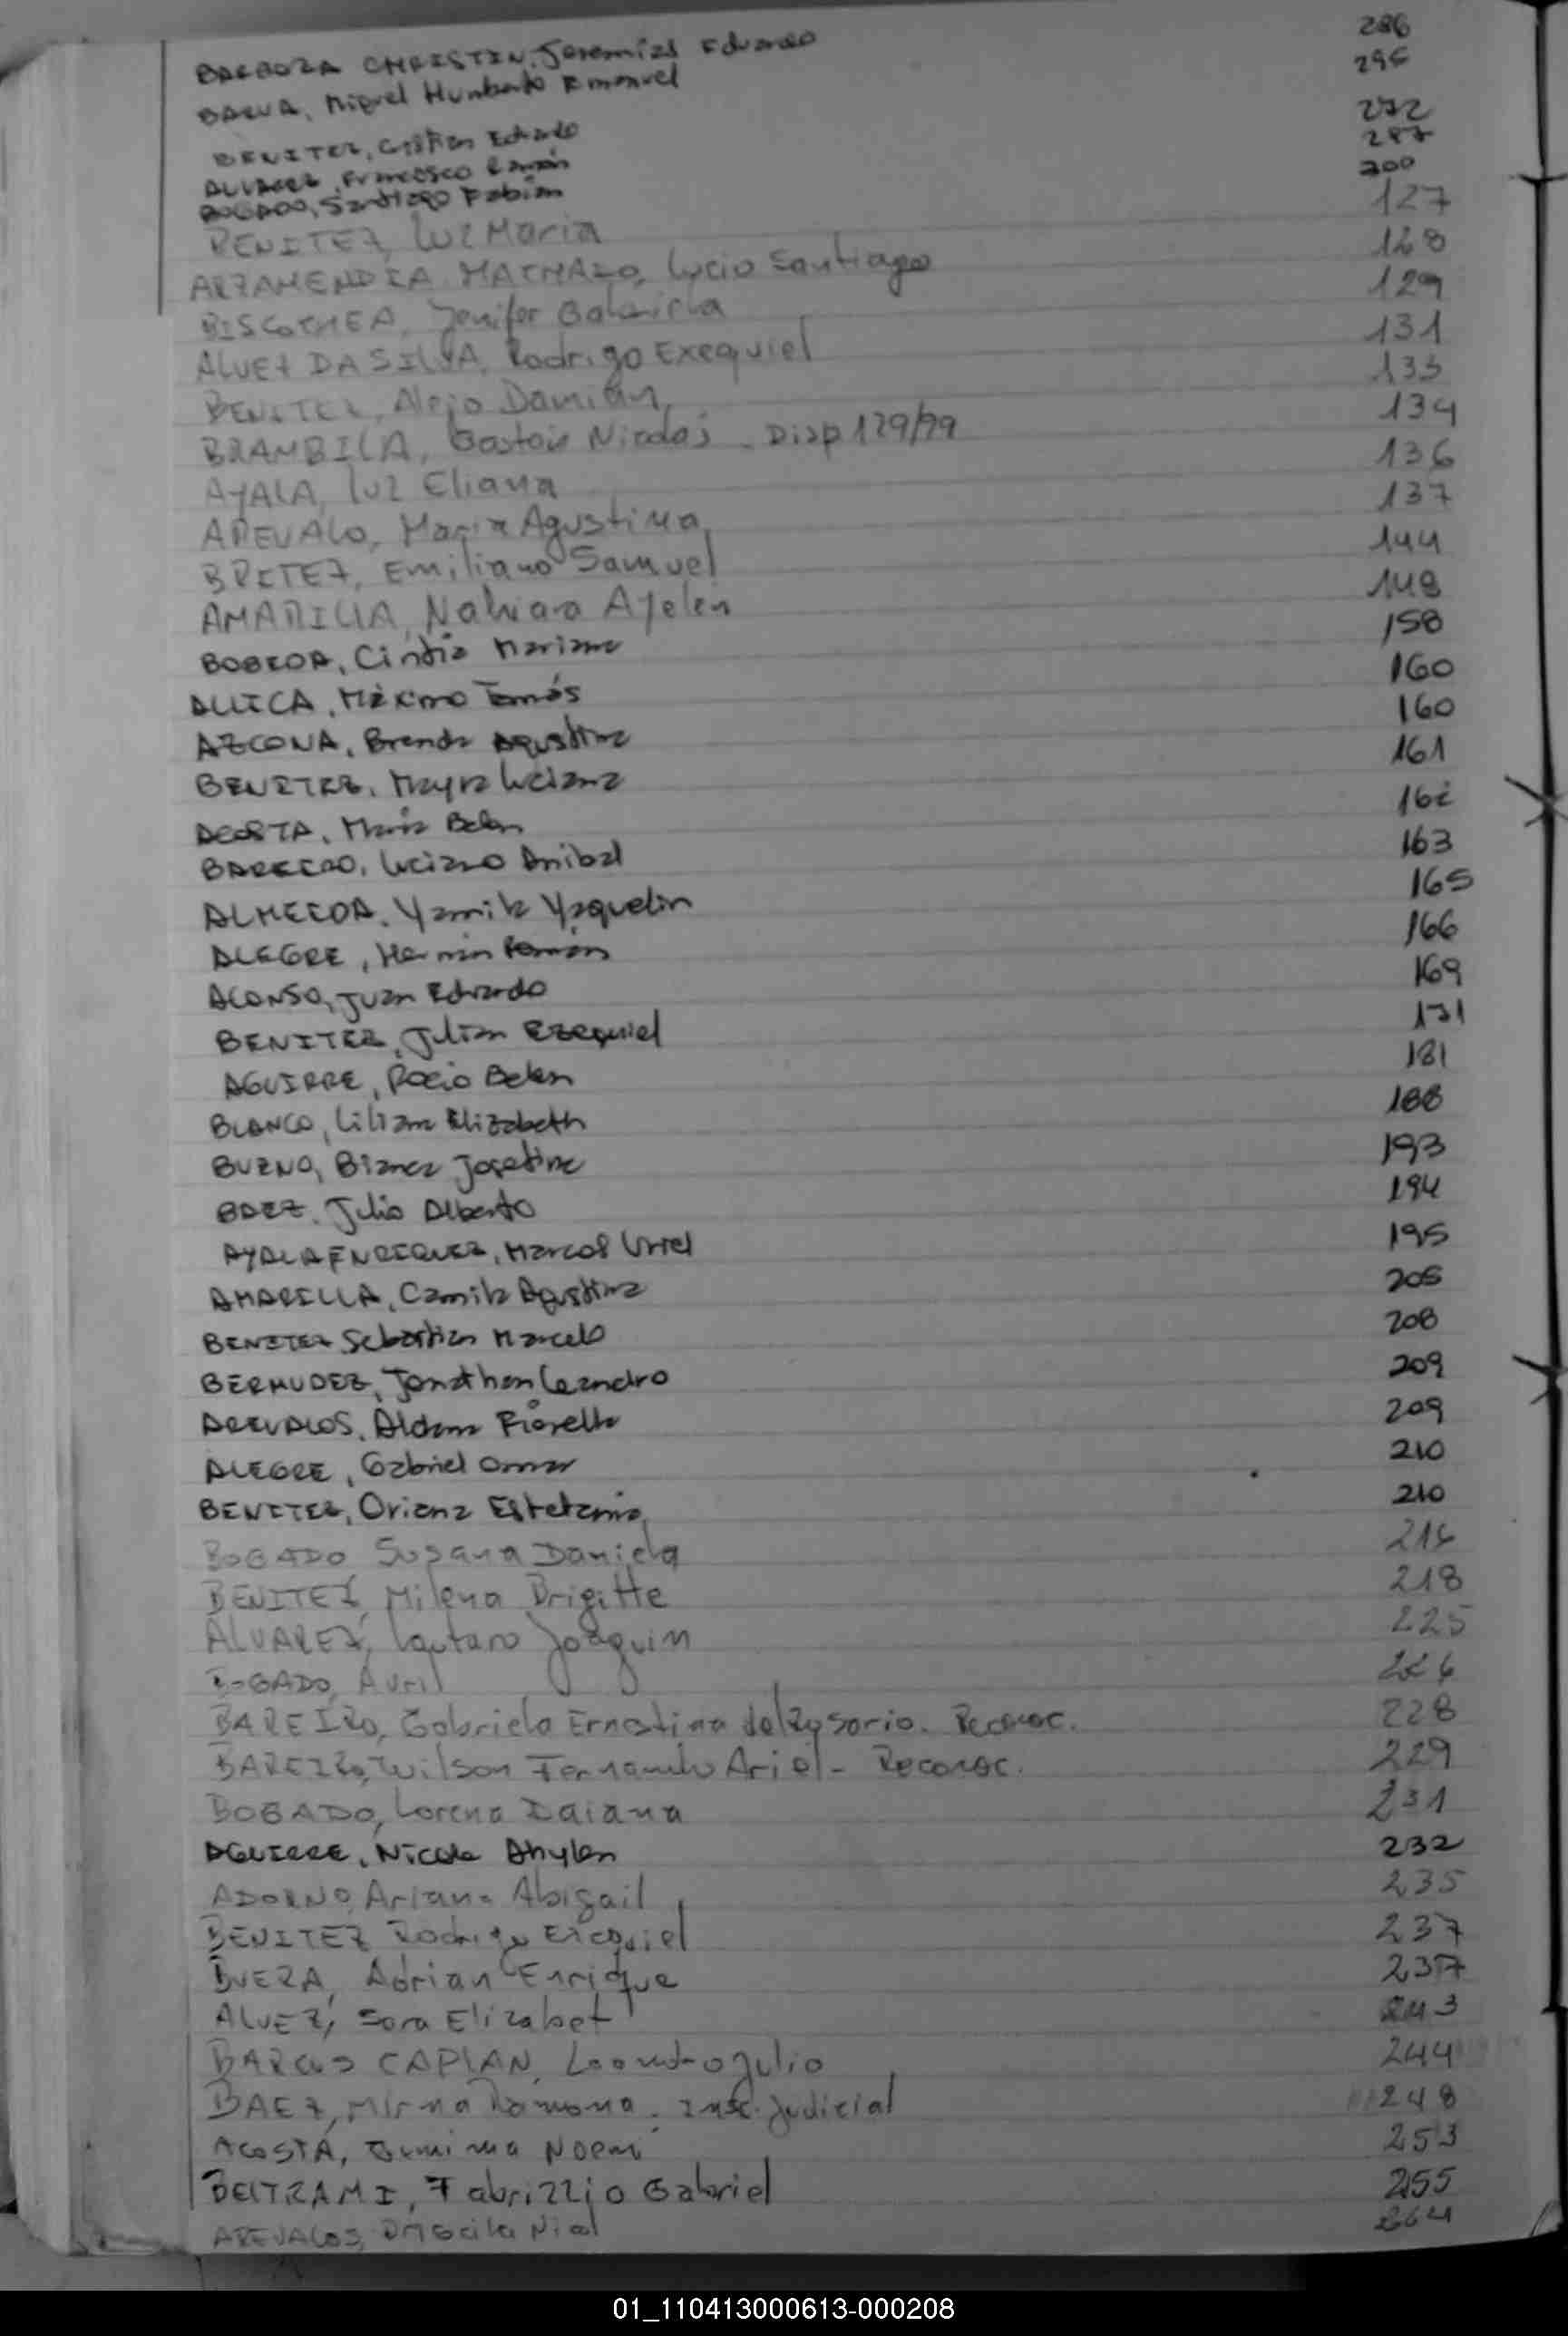 BARBOZA CHRISTIN, Jeremias Eduardo 286
BARUA, Miguel Humberto Emanuel 295
BENITEZ, Cristian Eduardo 272
ALVAREZ, Francisco Ramón 287
BOGADO, Santiago Fabian 300
BENITEZ, Luz Maria 127
ARZAMENDIA MACHADO, Lucio Santiago 128
BISCOCHEA, Jenifer Gabriela 129
ALVEZ DA SILVA, Rodrigo Exequiel 131
BENITEZ, Alejo Damián, 133
BRAMBILA, Gastón Nicolás - Disp 129/99 134
AYALA, Luz Eliana 136
AREVALO, Maria Agustina 137
BRITEZ, Emiliano Samuel 144
AMARILLA, Nahiara Ayelen 148
BOBEDA, Cintia Mariana 158
ALLICA, Máximo Tomás 160
AZCONA, Brenda Agustina 160
BENITEZ, Mayra Luciana 161
ACOSTA, María Belen 162
BAREIRO, Luciano Anibal 163
ALMEIDA, Yamila Yaquelin 165
ALEGRE, Hernán Ramón 166
ALONSO, Juan Eduardo 169
BENITEZ, Julian Ezequiel 171
AGUIRRE, Rocio Belen 181
BLANCO, Liliana Elizabeth 188
BUENO, Bianca Josefina 193
BAEZ, Julio Alberto 194
AYALA ENRIQUEZ, Marcos Uriel 195
AMARILLA, Camila Agustina 205
BENITEZ Sebastian Marcelo 208
BERMUDEZ, Jonathan Leandro 209
AREVALOS, Aldana Fiorella 209
ALEGRE, Gabriel Omar 210
BENITEZ, Oriana Estefania 210
BOGADO Susana Daniela 216
BENITEZ, Milena Brigitte 218
ALVAREZ, Lautaro Joaquin 225
BOGADO, Avril 226
BAREIRO, Gabriela Ernestina del Rosario. Reconoc. 228
BAREIRO, Wilson Fernando Ariel - Reconoc. 229
BOGADO, Lorena Daiana 231
AGUIRRE, Nicole Ahylen 232
ADORNO, Ariana Abigail 235
BENITEZ Rodrigo Exequiel 237
BUERA, Adrian Enrique 237
ALVEZ, Sara Elizabet 243
BARGAS CAPLAN, Leandro Julio 244
BAEZ, Mirna Ramona. Insc. Judicial 248
ACOSTA, Jemima Noemi 253
BELTRAMI, Fabrizzio Gabriel 255
AREVALOS, Priscila 264
01_110413000613-000208